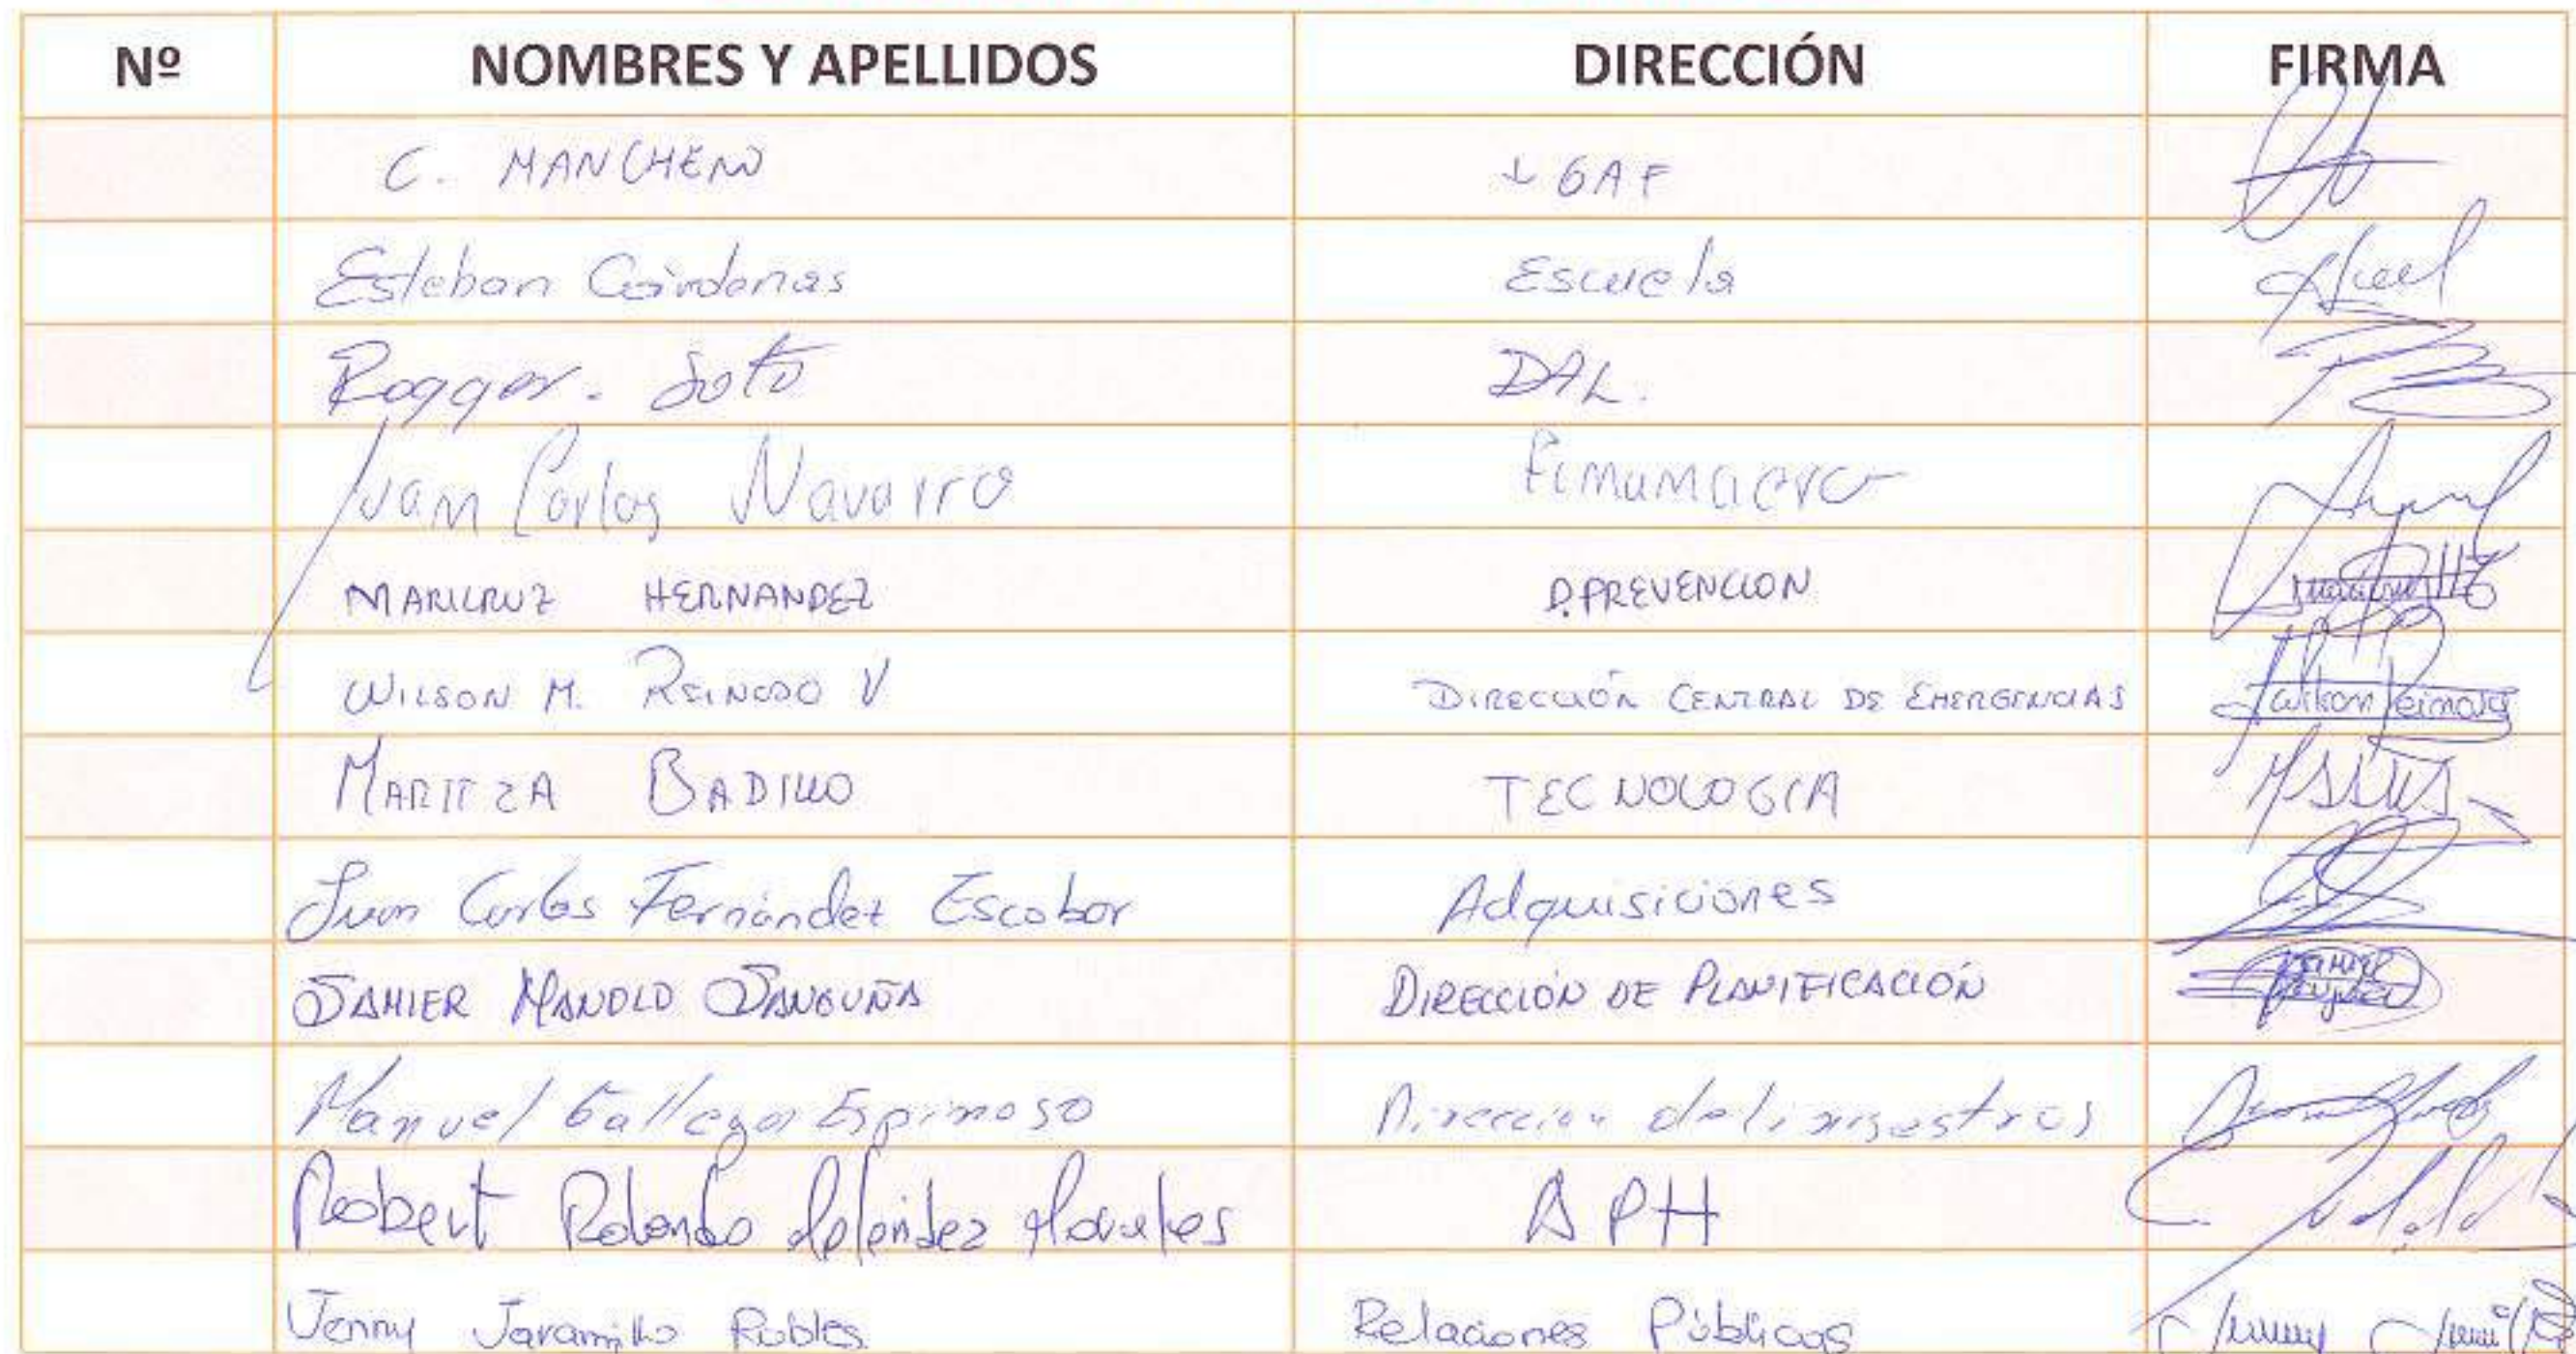 Nº NOMBRES Y APELLIDOS DIRECCIÓN FIRMA
C. MANCHENO GAF
Esteban Cárdenas Escuela
Rogger. Soto DAL.
Juan Carlos Navarro
MARICRUZ HERNANDEZ D.PREVENCION
WILSON M. REINOSO V DIRECCIÓN CENTRAL DE EMERGENCIAS Wilson Reinoso
MARITZA BADILLO TECNOLOGIA
Juan Carlos Fernández Escobar Adquisiciones
JAHIER MANOLO SANGUÑA DIRECCIÓN DE PLANIFICACIÓN
Manuel Gallegos Espinoso Direccion de Siniestros
Robert Rolando Meléndez Morales APH
Jenny Jaramillo Robles Relaciones Públicas